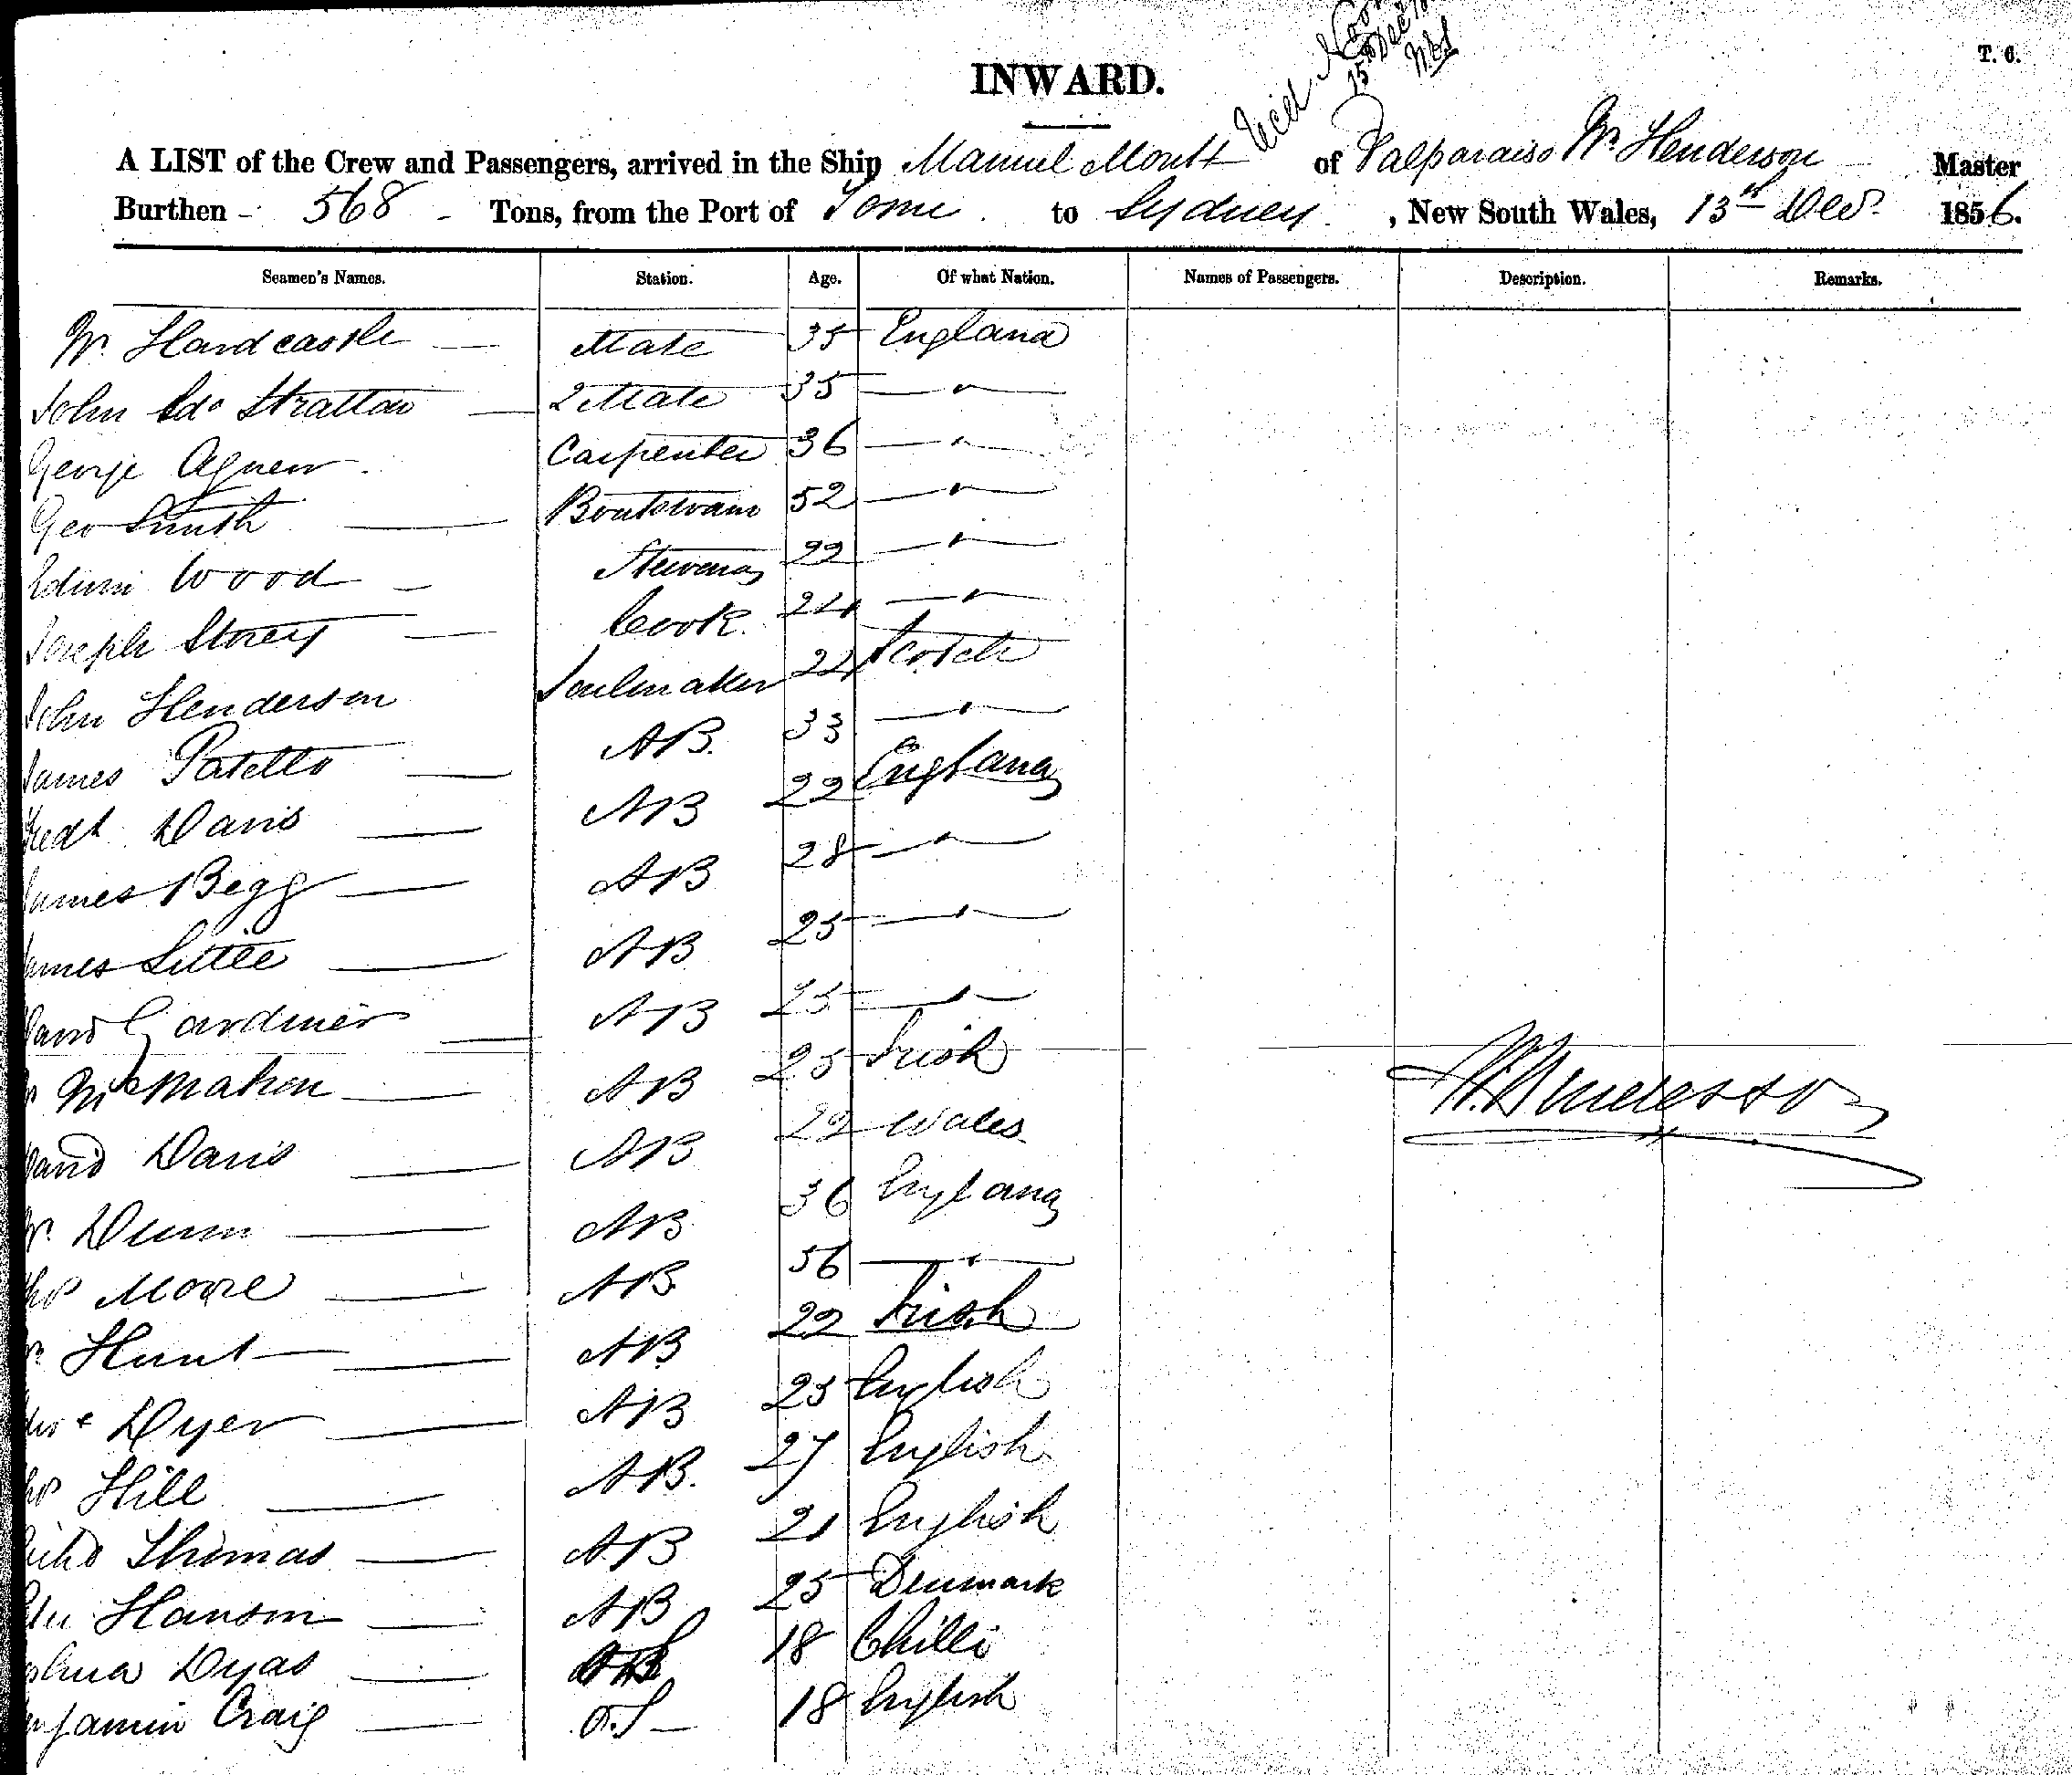 T. 6.
15th Dec
INWARD.
A LIST of the Crew and Passengers, arrived in the Ship Manuel Montt of Valparaiso Wm. Henderson Master
Burthen - 568 - Tons, from the Port of Tome to Sydney, New South Wales, 13th Decr. 1856.
Seamen's Names. Station. Age. Of what Nation. Names of Passengers. Description. Remarks.
Wm. Hardcastle Mate 35 England
John Edd Stratton 2 Mate 35 — " —
George Agnew Carpenter 36 — " —
Geo Smith Boatswain 52 — " —
Edwin Wood Steward 22 — " —
Joseph Storey Cook 24 — " —
John Henderson Sailmaker 22 Scotch
James Patello AB. 33 — " —
Fredk Davis AB 22 England
James Begg AB 28 — " —
James Little AB 25 — " —
David Gardiner AB 25 — " —
McMahon AB 25 Irish
David Davis AB 22 Wales
Wm. Dunn AB 36 England
Thos Moore AB 56 — " —
Wm Hunt AB 22 Irish
Dyer AB 25 English
Thos Hill AB. 27 English
Richd Thomas AB 21 English
Peter Hanson AB 25 Denmark
Joshua Dyas 18 Chilli
Benjamin Craig O.S — 18 English
W. Henderson